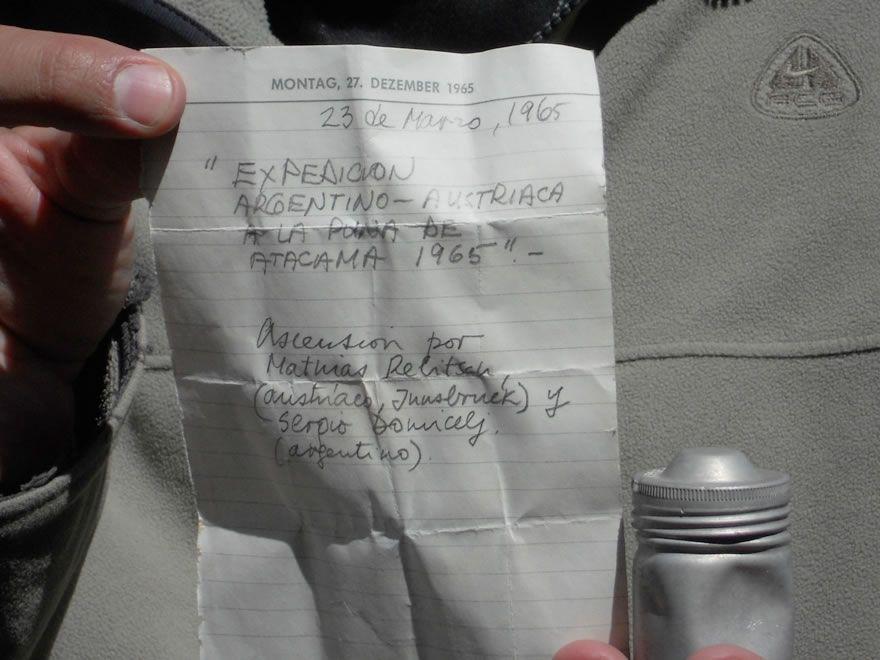 MONTAG, 27. DEZEMBER 1965
23 de Marzo, 1965
" EXPEDICION
ARGENTINO - AUSTRIACA
A LA PUNA DE
ATACAMA 1965". -
Ascensión por
Mathias Rebitsch,
(austríaco, Innsbruck) y
Sergio Domicelj.
(argentino).
ACG